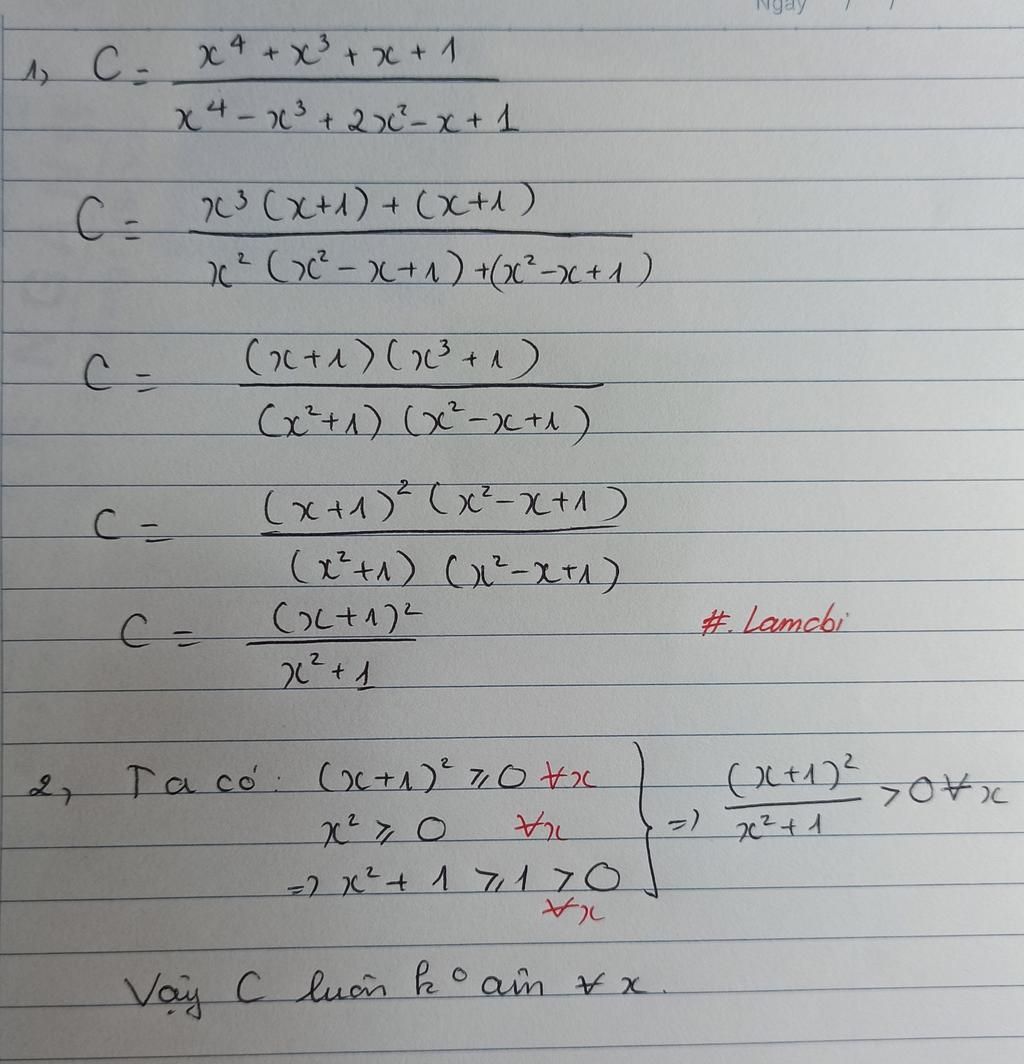 Ngày / /
1, C = (x⁴ + x³ + x + 1) / (x⁴ - x³ + 2x² - x + 1)
C = (x³ (x+1) + (x+1)) / (x² (x² - x + 1) + (x² - x + 1))
C = ((x+1)(x³ + 1)) / ((x² + 1) (x² - x + 1))
C = ((x+1)² (x² - x + 1)) / ((x² + 1) (x² - x + 1))
C = (x+1)² / (x² + 1)
#. Lamcbi
2, Ta có: (x+1)² ⩾ 0 ∀x
x² ⩾ 0 ∀x
=> x² + 1 ⩾ 1 > 0 ∀x
} => (x+1)² / (x² + 1) > 0 ∀x
Vậy C luôn k° âm ∀x.